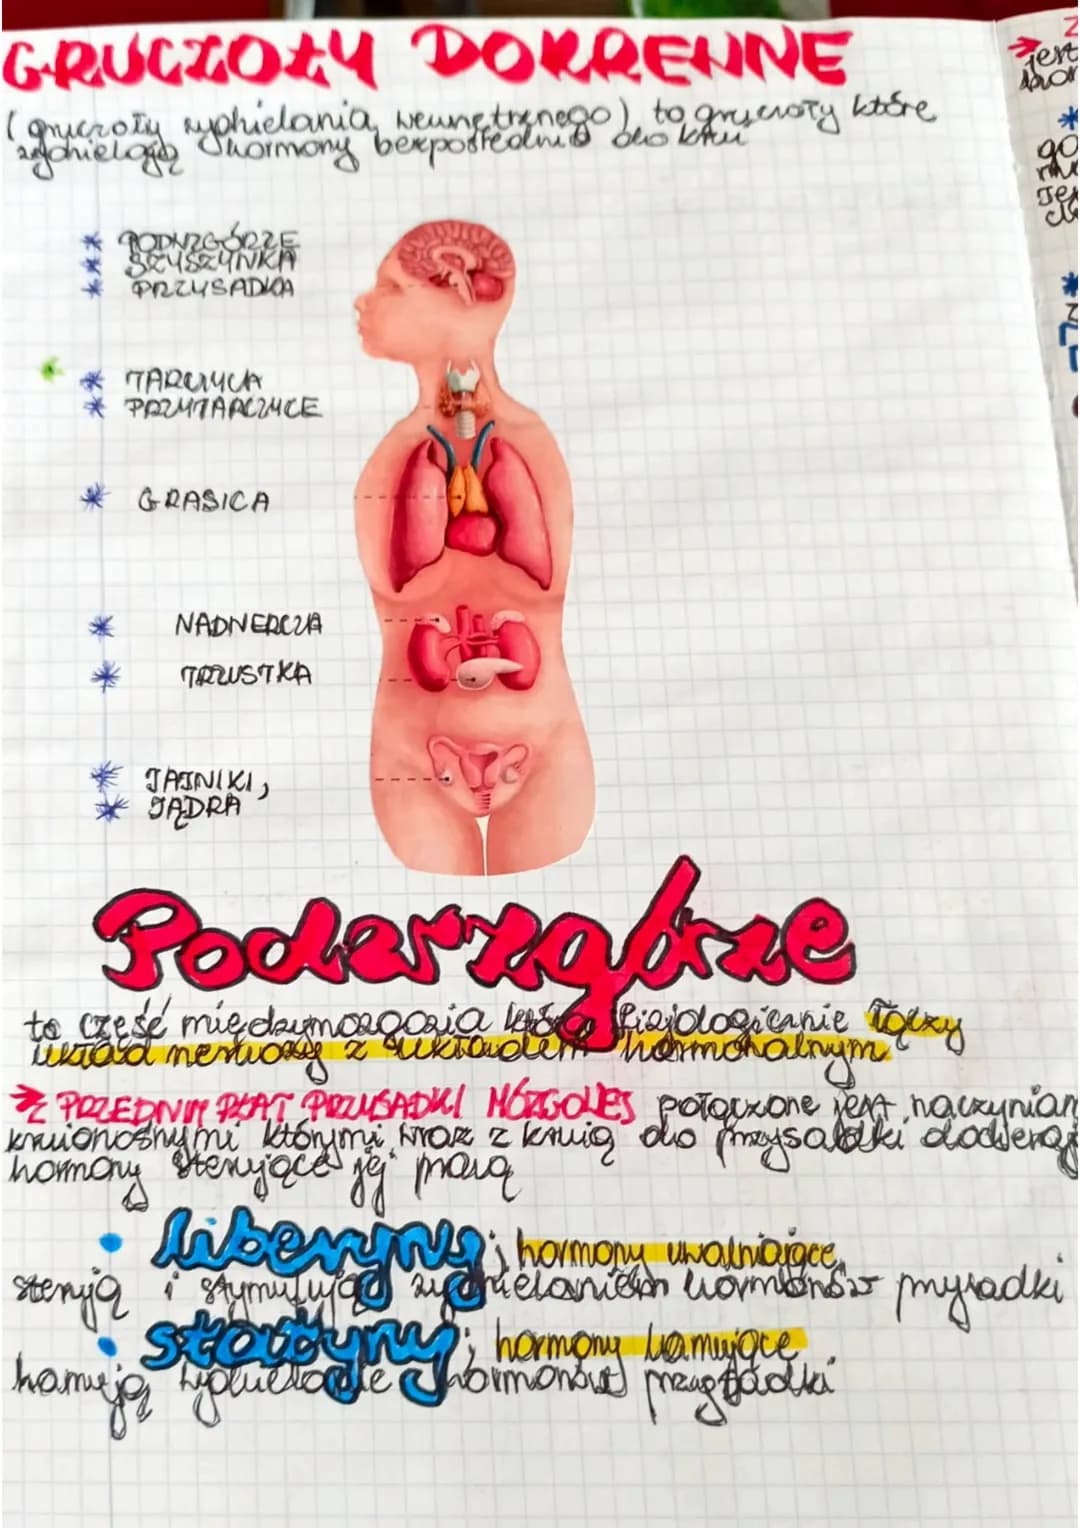 GRUCZOŁY DOKREWNE
(gruczoły wydzielania wewnętrznego) to gruczoły które
wydzielają hormony bezpośrednio do krwi
* PODWZGÓRZE
* SZYSZYNKA
* PRZYSADKA
* TARCZYCA
* PRZYTARCZYCE
* GRASICA
* NADNERCZA
* TRZUSTKA
* JAJNIKI,
* JĄDRA
Podwzgórze
to część międzymózgowia która fizjologicznie łączy
układ nerwowy z układem hormonalnym
→ Z PRZEDNIM PŁAT PRZYSADKI MÓZGOWEJ połączone jest naczyniam
krwionośnymi którymi wraz z krwią do przysadki docierają
hormony sterujące jej pracą
• liberyny; hormony uwalniające,
sterują i stymulują wydzielaniem hormonów przysadki
• statyny; hormony hamujące
hamują wydzielanie hormonów przysadki
→ jest
*